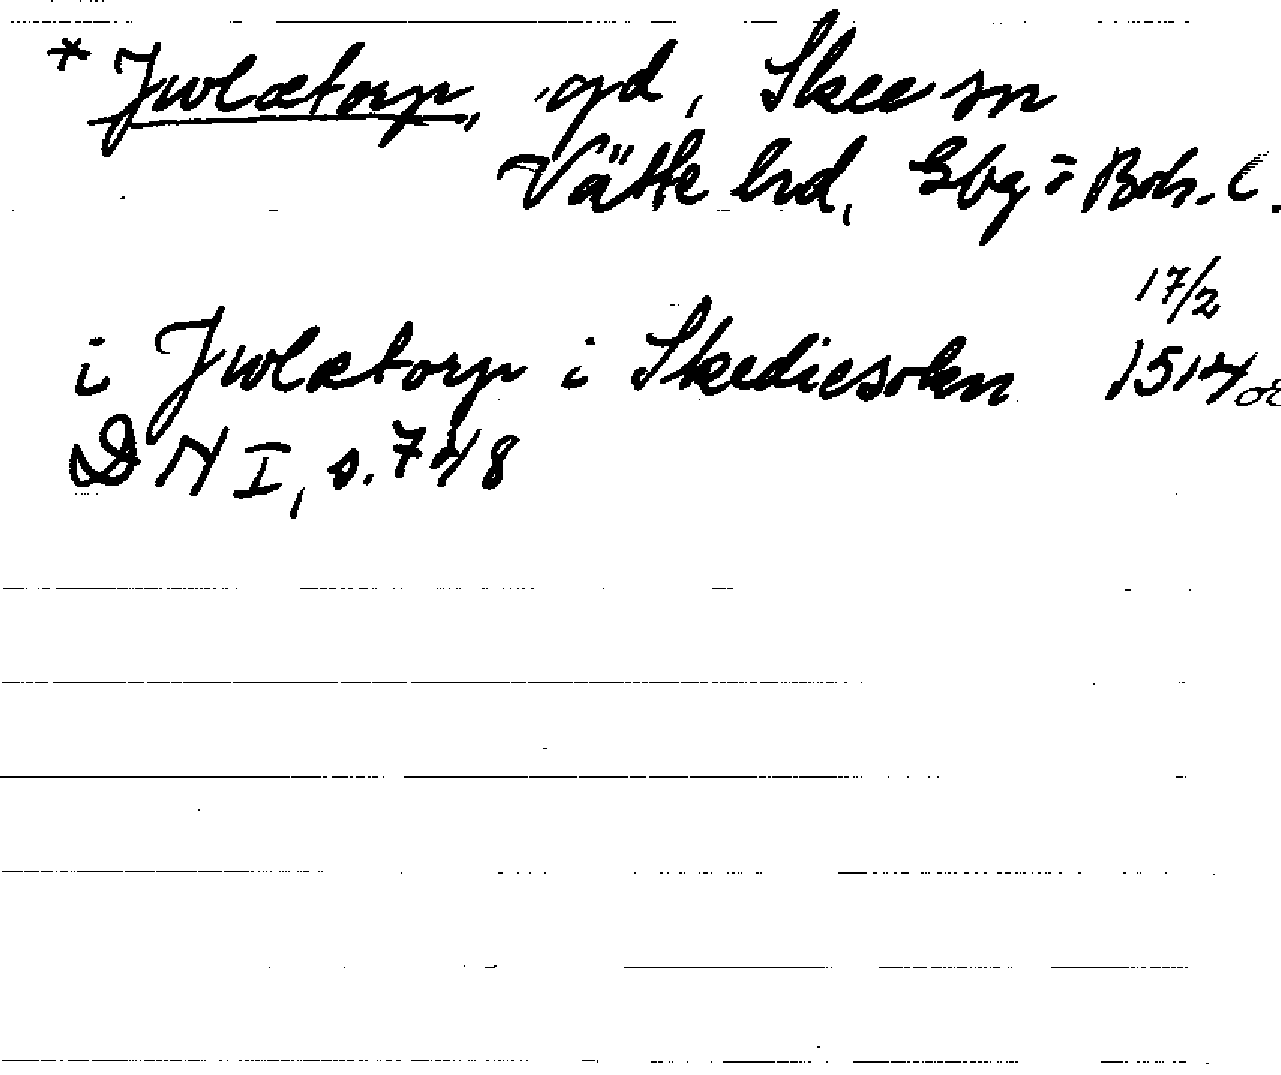 * Jwlætorp, gd, Skee sn
Vätte hd, Gbg o Boh. l.
17/2
i Jwlætorp i Skediesokn 1514 or
DN I, s. 748